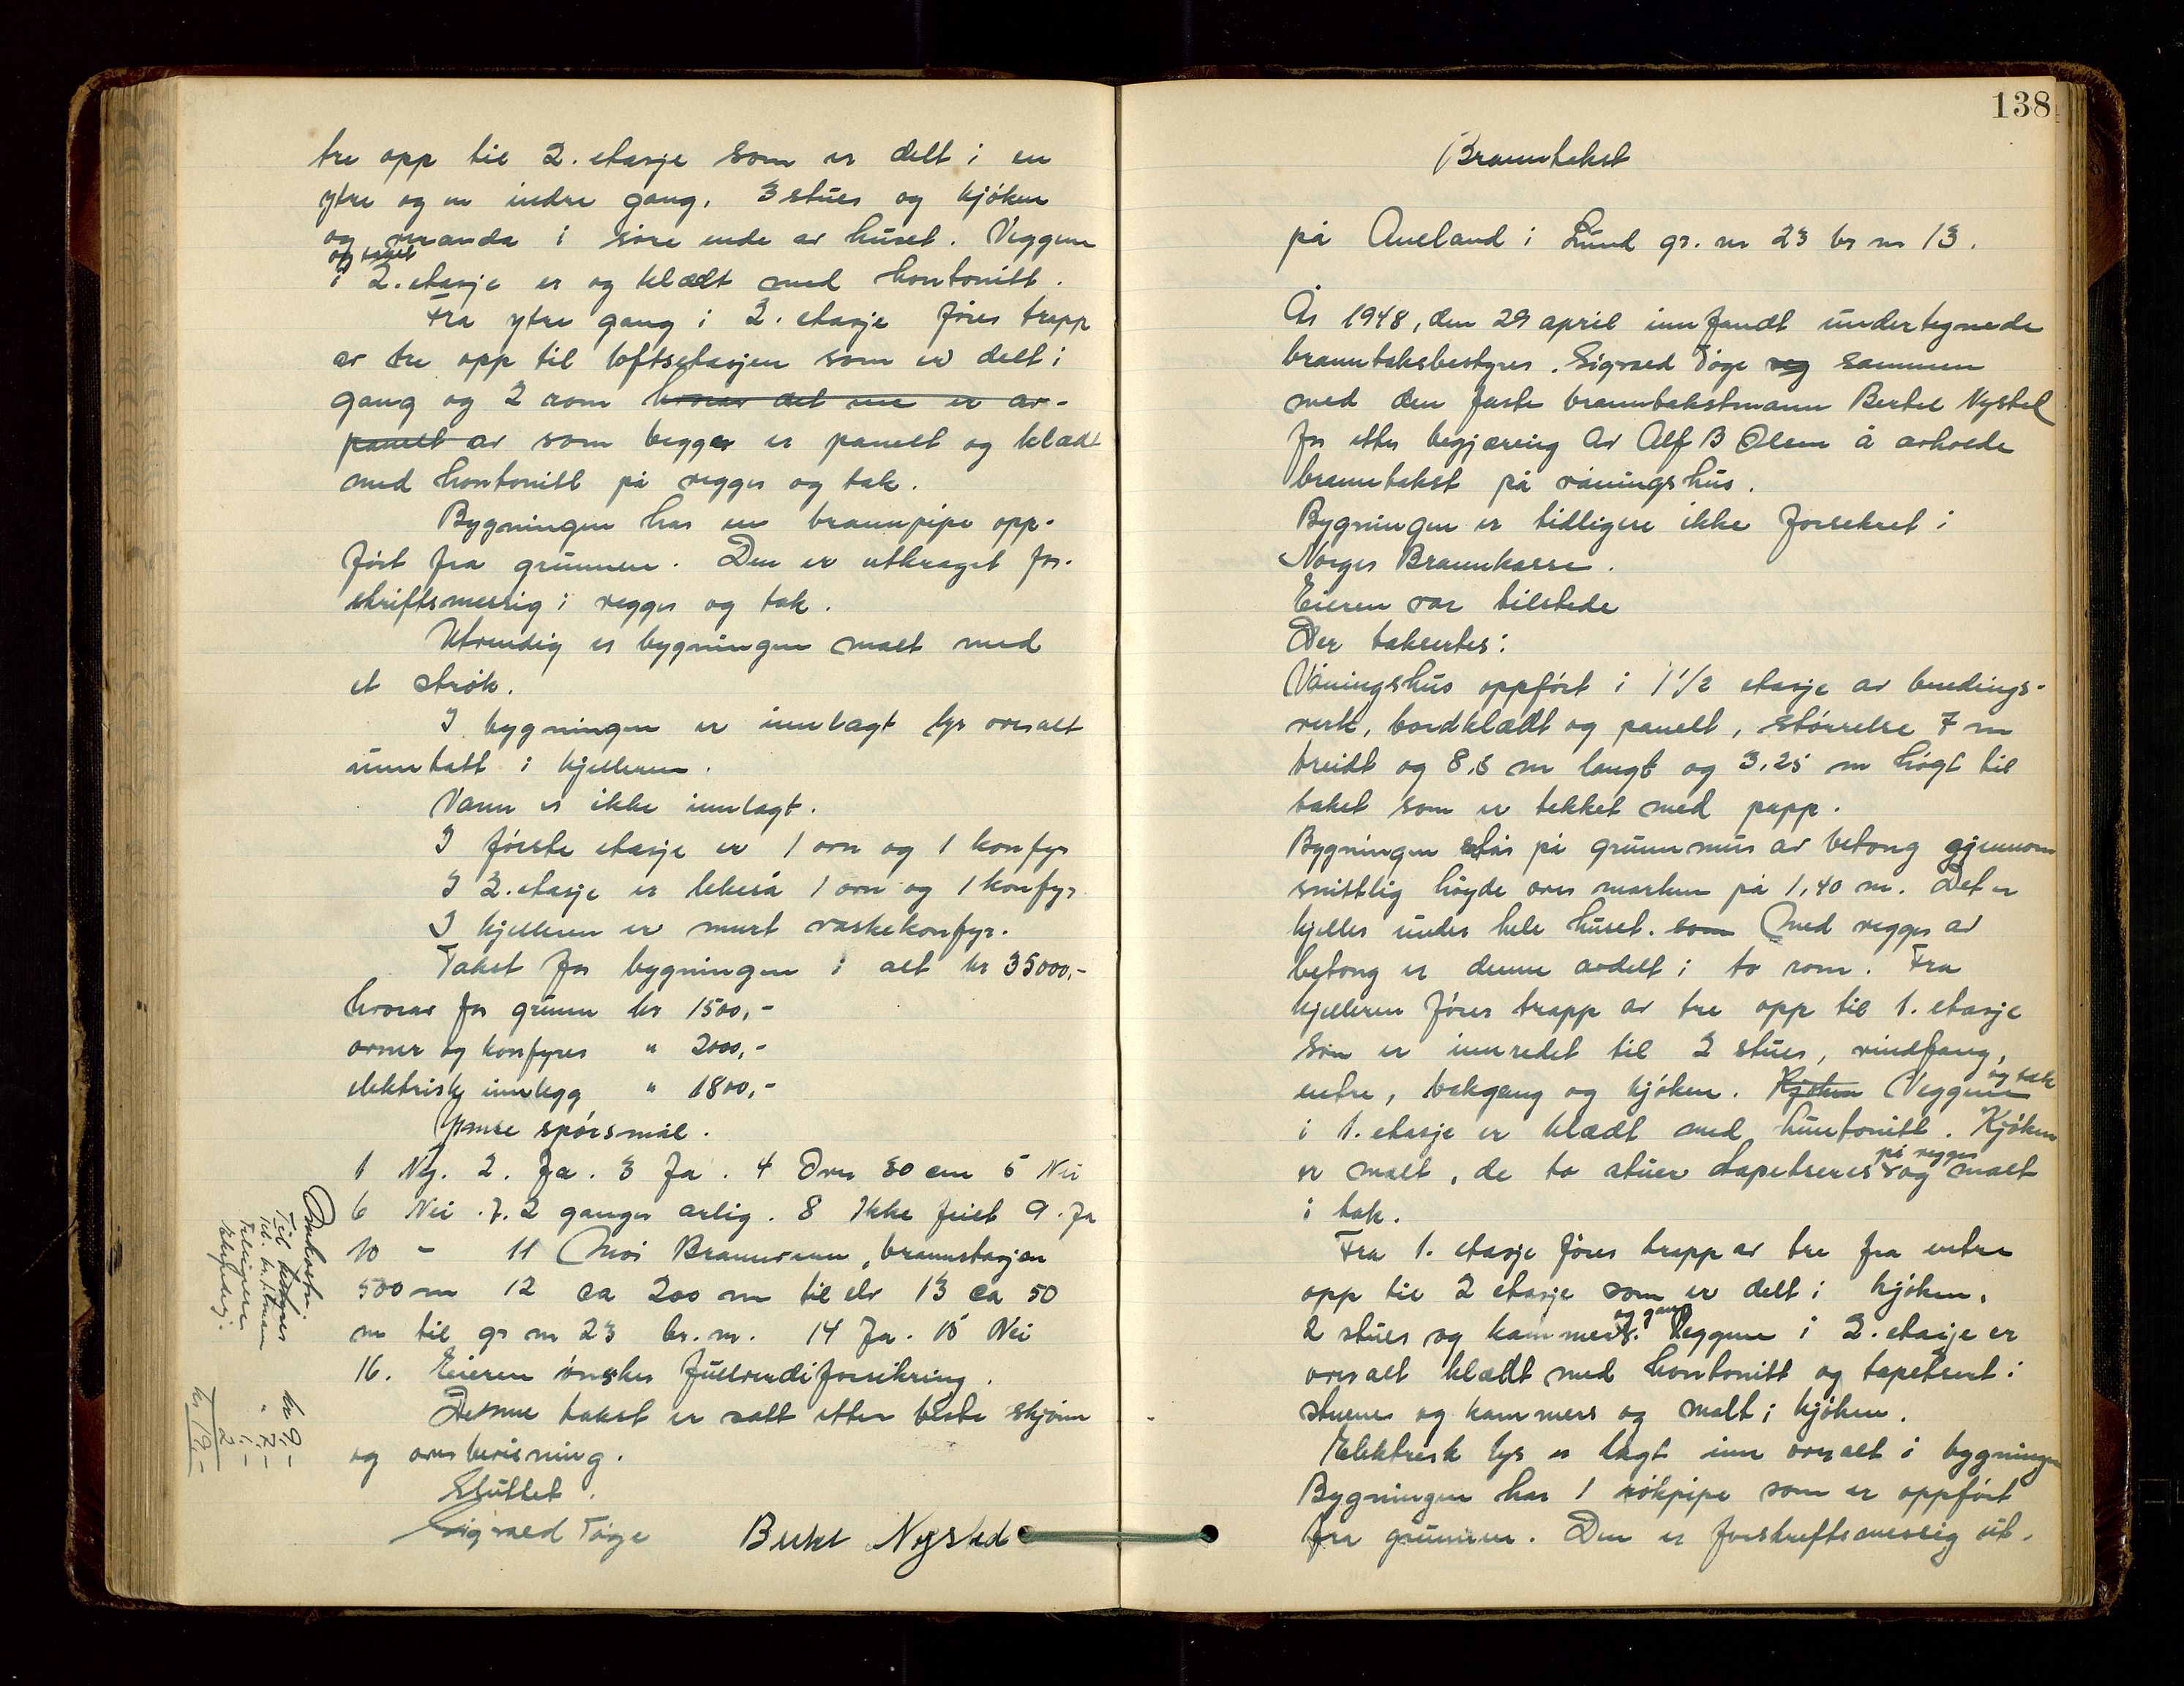 tre opp til 2. etasje som er delt i en
ytre og en indre gang, 3 stuer og kjøken
og veranda i søre ende av huset. Veggene
og taket
i 2. etasje er og klædt med hontonitt.
Fra ytre gang i 2. etasje føres trapp
av tre opp til loftsetasjen som er delt i
gang og 2 rom hvorav det ene er av-
panelt av som begge er panelt og klædt
med hontonitt på vegger og tak.
Bygningen har en brannpipe opp-
ført fra grunnen. Den er utkraget for-
skriftsmessig i vegger og tak.
Utvendig er bygningen malt med
et strøk.
I bygningen er innlagt lys overalt
unntatt i kjelleren.
Vann er ikke innlagt.
I første etasje er 1 ovn og 1 komfyr
I 2. etasje er likeså 1 ovn og 1 komfyr
I kjelleren er murt vaskekomfyr.
Takst for bygningen i alt kr 35000,-
hvorav for grunn kr 1500,-
ovner og komfyrer " 2000,-
elektrisk innlegg " 1800,-
spørsmål.
1 Nej. 2. Ja. 3 Ja. 4 Over 30 cm 5 Nei
6 Nei. 7. 2 ganger årlig. 8 Ikke feiet 9. Ja
10 - 11 Moi Brannvern, brannstasjon
500 m 12 ca 200 m til elv 13 ca 50
m til gr nr 23 br. nr. 14 Ja. 15 Nei
16. Eieren ønsker fullverdiforsikring.
Denne takst er satt etter beste skjønn
og overbevisning.
Sluttet.
Sigvald Tøge Bertel Nystad
Omkostn.
Til bestyrer kr 9,-
til br. t. mann " 7,-
1,-
2
kr 19,-
138
Branntakst
på Aueland i Lund gr. nr 23 br nr 13.
År 1948, den 29 april innfandt undertegnede
branntakstbestyrer. Sigvald Tøge seg sammen
med den faste branntakstmann Bertel Nystel
for etter begjæring av Alf B Olsen å avholde
branntakst på våningshus.
Bygningen er tidligere ikke forsekret i
Norges Brannkasse.
Eieren var tilstede
Der taksertes:
Våningshus oppført i 1 1/2 etasje av bindings-
verk, bordklædt og panelt, størrelse 7 m
breidt og 8,5 m langt og 3,25 m høgt til
taket som er tekket med papp.
Bygningen står på grunnmur av betong gjennom
snittlig høyde over marken på 1,40 m. Det er
kjeller under hele huset. som Med vegger av
betong er denne avdelt i to rom. Fra
kjelleren føres trapp av tre opp til 1. etasje
som er innredet til 2 stuer, vindfang,
entre, bakgang og kjøken. Kjøken Veggene og tak
i 1. etasje er klædt med huntonitt. Kjøken
er malt, de to stuer tapetseres på vegger og malt
i tak.
Fra 1. etasje føres trapp av tre fra entre
opp til 2 etasje som er delt i kjøken,
2 stuer og kammers. og gang Veggene i 2. etasje er
overalt klædt med hontonitt og tapetsert i
stuene og kammers og malt i kjøken.
Elektrisk lys er lagt inn overalt i bygningen
Bygningen har 1 røkpipe som er oppført
fra grunnen. Den er forskriftsmessig ut-